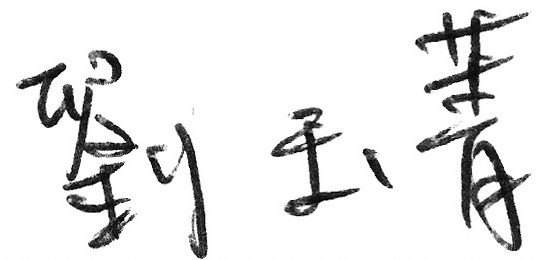 劉玉菁